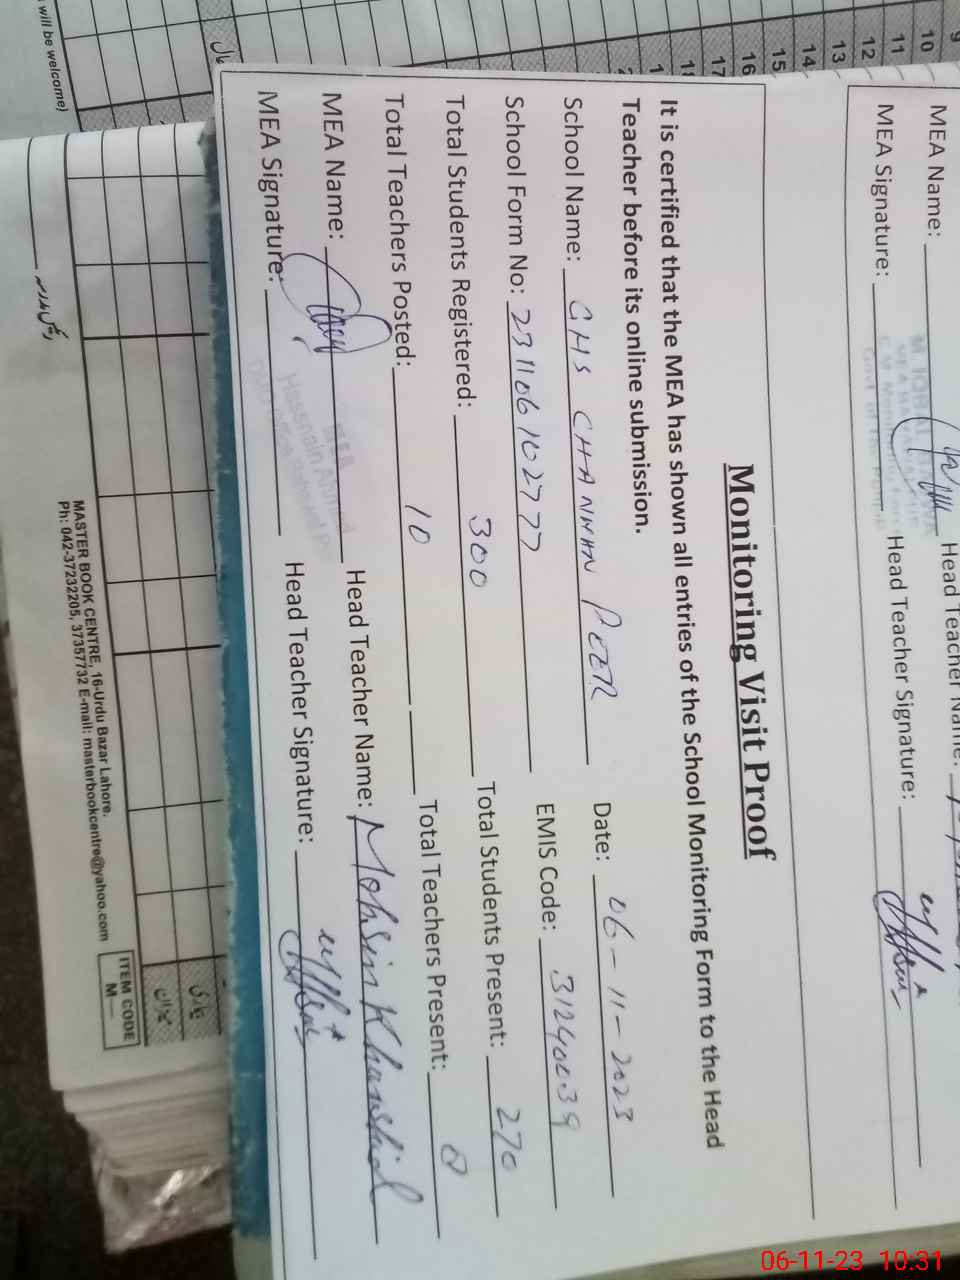 MEA Name:
Head Teacher Name:
MEA Signature:
Head Teacher Signature:
Monitoring Visit Proof
It is certified that the MEA has shown all entries of the School Monitoring Form to the Head
Teacher before its online submission.
School Name: GHS CHANNAN PEER Date: 06-11-2023
School Form No: 231106102777 EMIS Code: 31240039
Total Students Registered: 300 Total Students Present: 270
Total Teachers Posted: 10 Total Teachers Present:
MEA Name: Head Teacher Name: Mohsin Khurshid
MEA Signature: Head Teacher Signature:
MEA
Hassnain Ahmed
9
10
11
12
13
14
15
16
17
will be welcome)
MASTER BOOK CENTRE, 16-Urdu Bazar Lahore.
Ph: 042-37232205, 37357732 E-mail: masterbookcentre@yahoo.com
ITEM CODE
M—
06-11-23 10:31